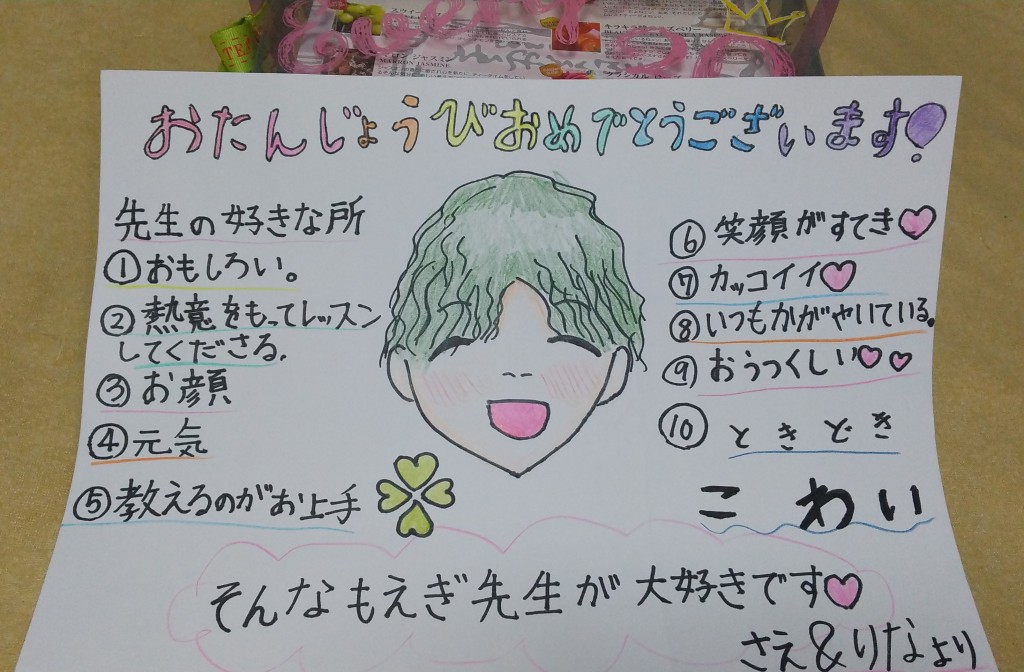 おたんじょうびおめでとうございます!
先生の好きな所
①おもしろい。
②熱意をもってレッスン
してくださる。
③お顔
④元気
⑤教えるのがお上手
⑥笑顔がすてき♡
⑦カッコイイ♡
⑧いつもかがやいている。
⑨おうつくしい♡♡
⑩ときどき
こわい
そんなもえぎ先生が大好きです♡
さえ&りなより